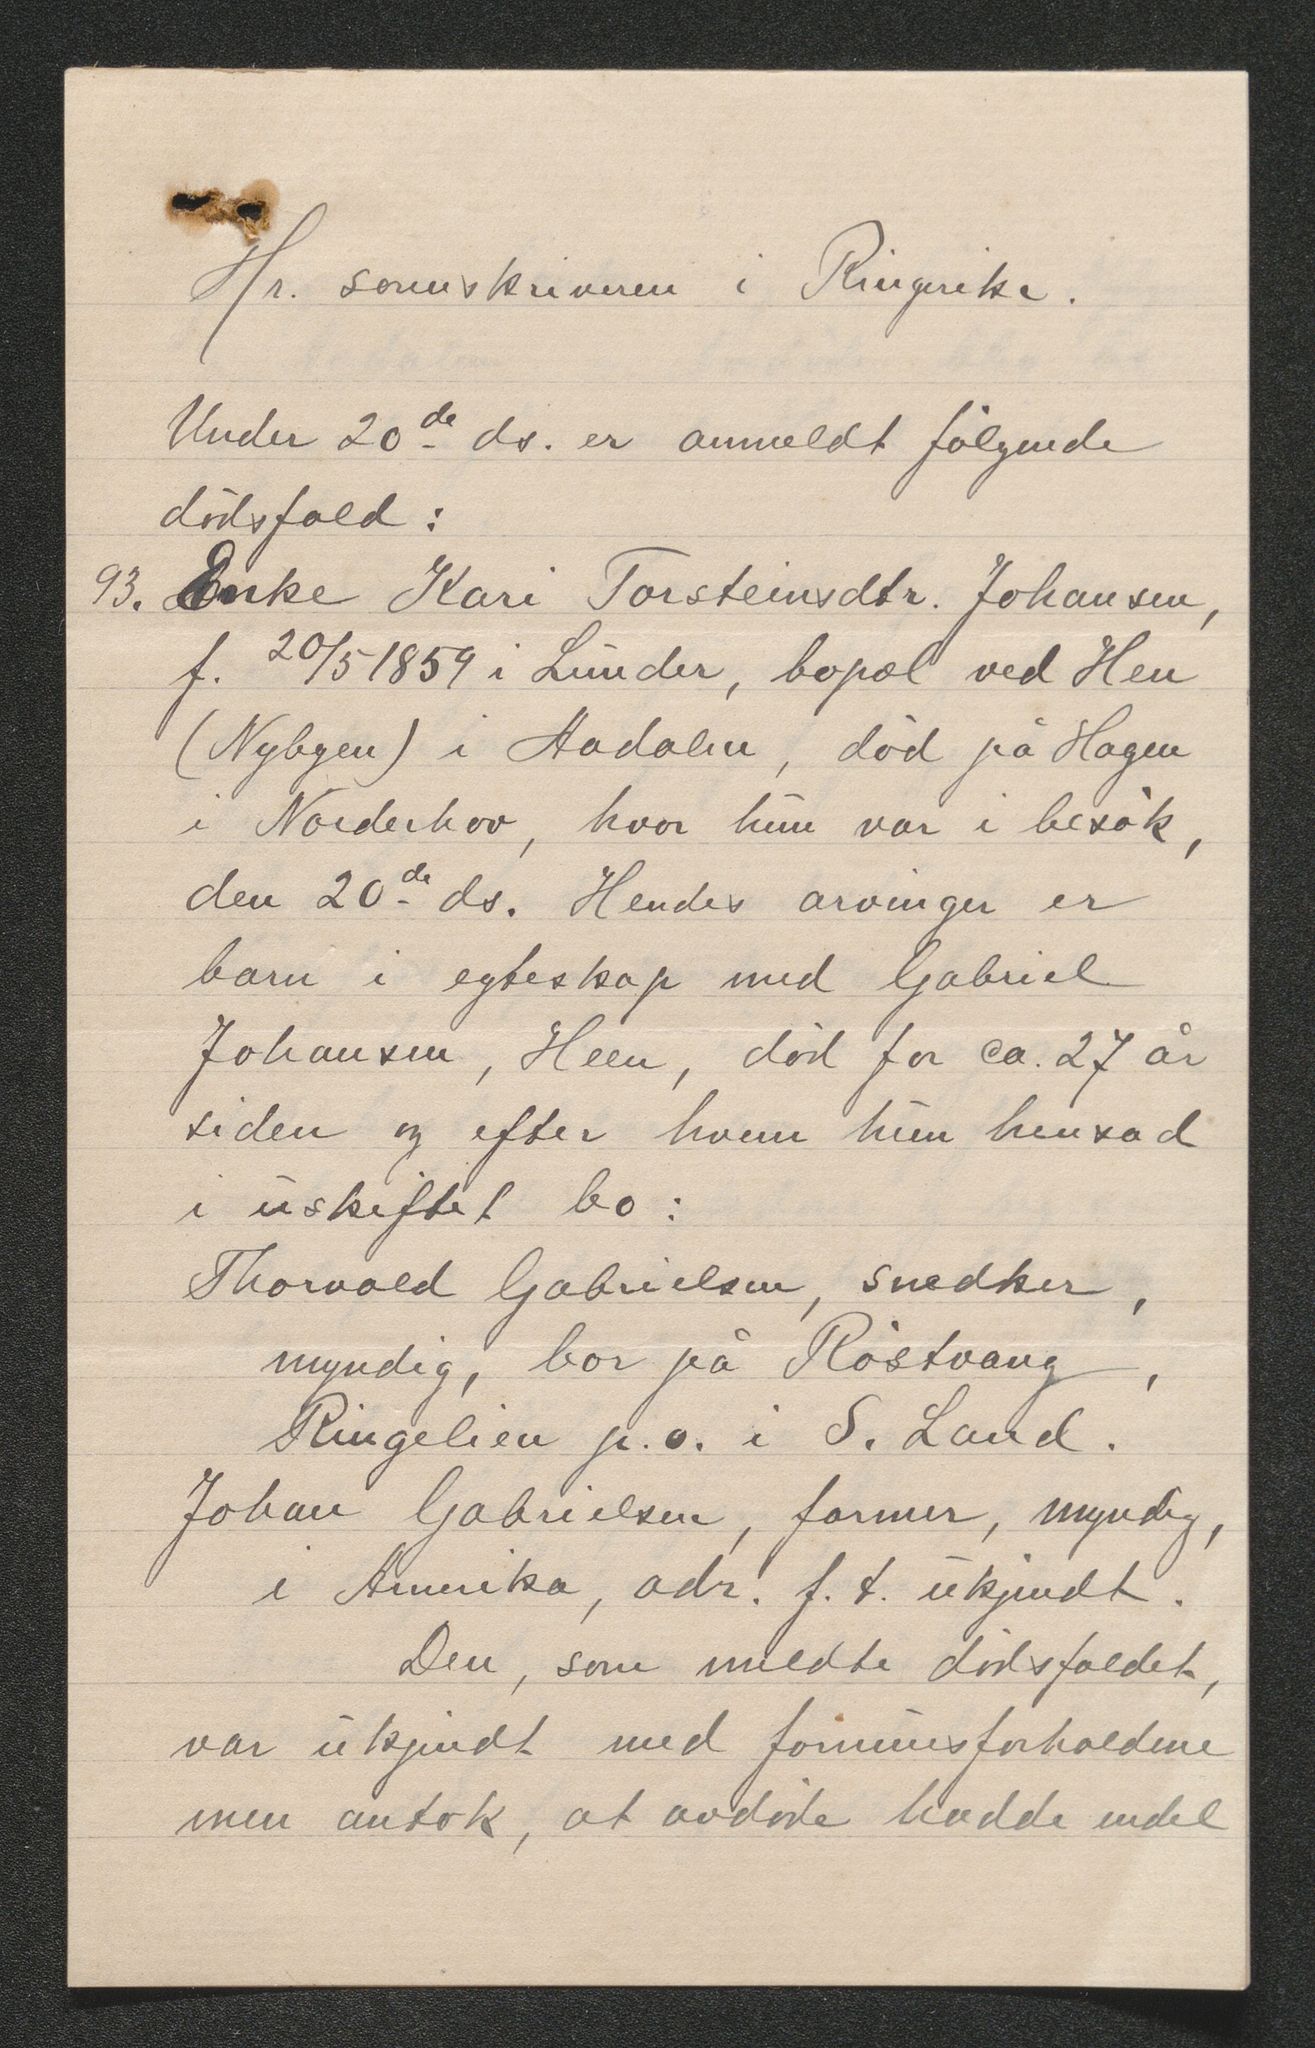 Hr. sorenskriveren i Ringerike.
Under 20de ds. er anmeldt følgende
dødsfald:
93. Enke Kari Torsteinsdtr. Johansen,
f. 20/5 1859 i Lunder, bopæl ved Hen
(Nybyen) i Aadalen, død på Hagen
i Norderhov, hvor hun var i besøk,
den 20de ds. Hendes arvinger er
barn i egteskap med Gabriel
Johansen, Heen, død for ca. 27 år
siden og efter hvem hun hensad
i uskiftet bo:
Thorvald Gabrielsen, snedker,
myndig, bor på Røstvang,
Ringelien p.o. i S. Land.
Johan Gabrielsen, farmer, myndig,
i Amerika, adr. f. t. ukjendt.
Den, som meldte dødsfaldet,
var ukjendt med formuesforholdene
men antok, at avdøde hadde endel